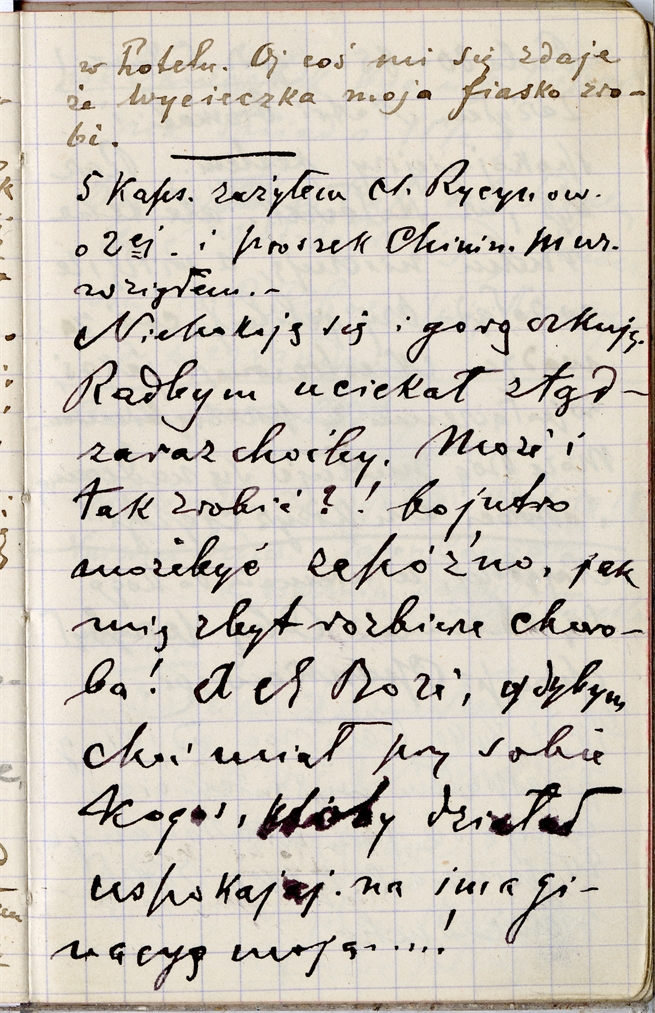 w hotelu. Oj coś mi się zdaje
że wycieczka moja fiasko zro-
bi.
5 Kaps. zażyłem Ol. Rycynow.
i proszek Chinin. Mur.
wziąłem.-
Niepokoję się i gorączkuję.
Radbym uciekał ztąd-
zaraz choćby. Może i
tak zrobić?! bo jutro
możebyć zapóźno, jak
mię zbyt rozbierze choro-
ba! Ach Boże, gdybym
choć miał przy sobie
kogoś, któryby działał
uspokajaj. na imagi-
nacyę moją....!